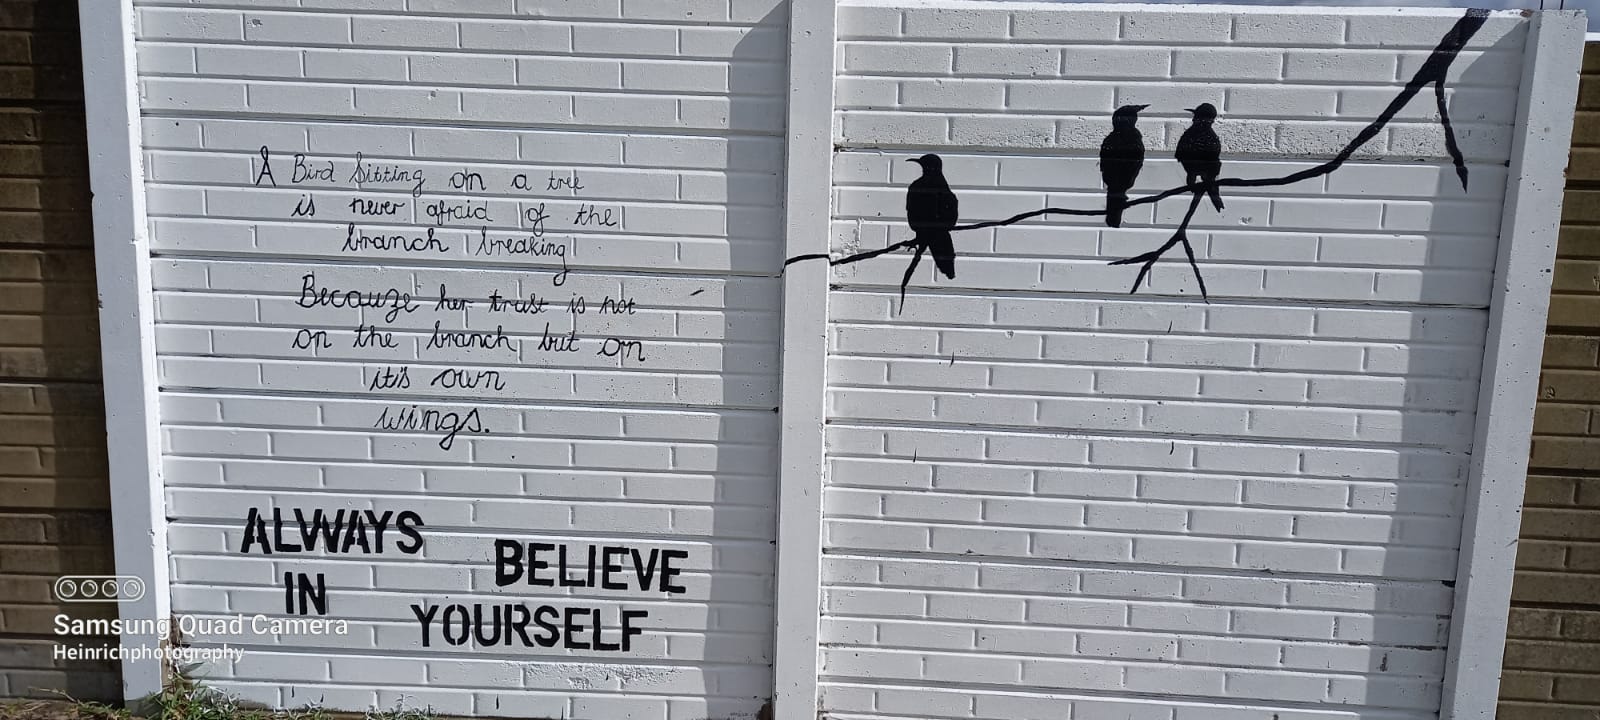 A Bird Sitting on a tree
is never afraid of the
branch breaking
Becauze her trust is not
on the branch but on
it's own
wings.
ALWAYS BELIEVE
IN YOURSELF
Samsung Quad Camera
Heinrichphotography